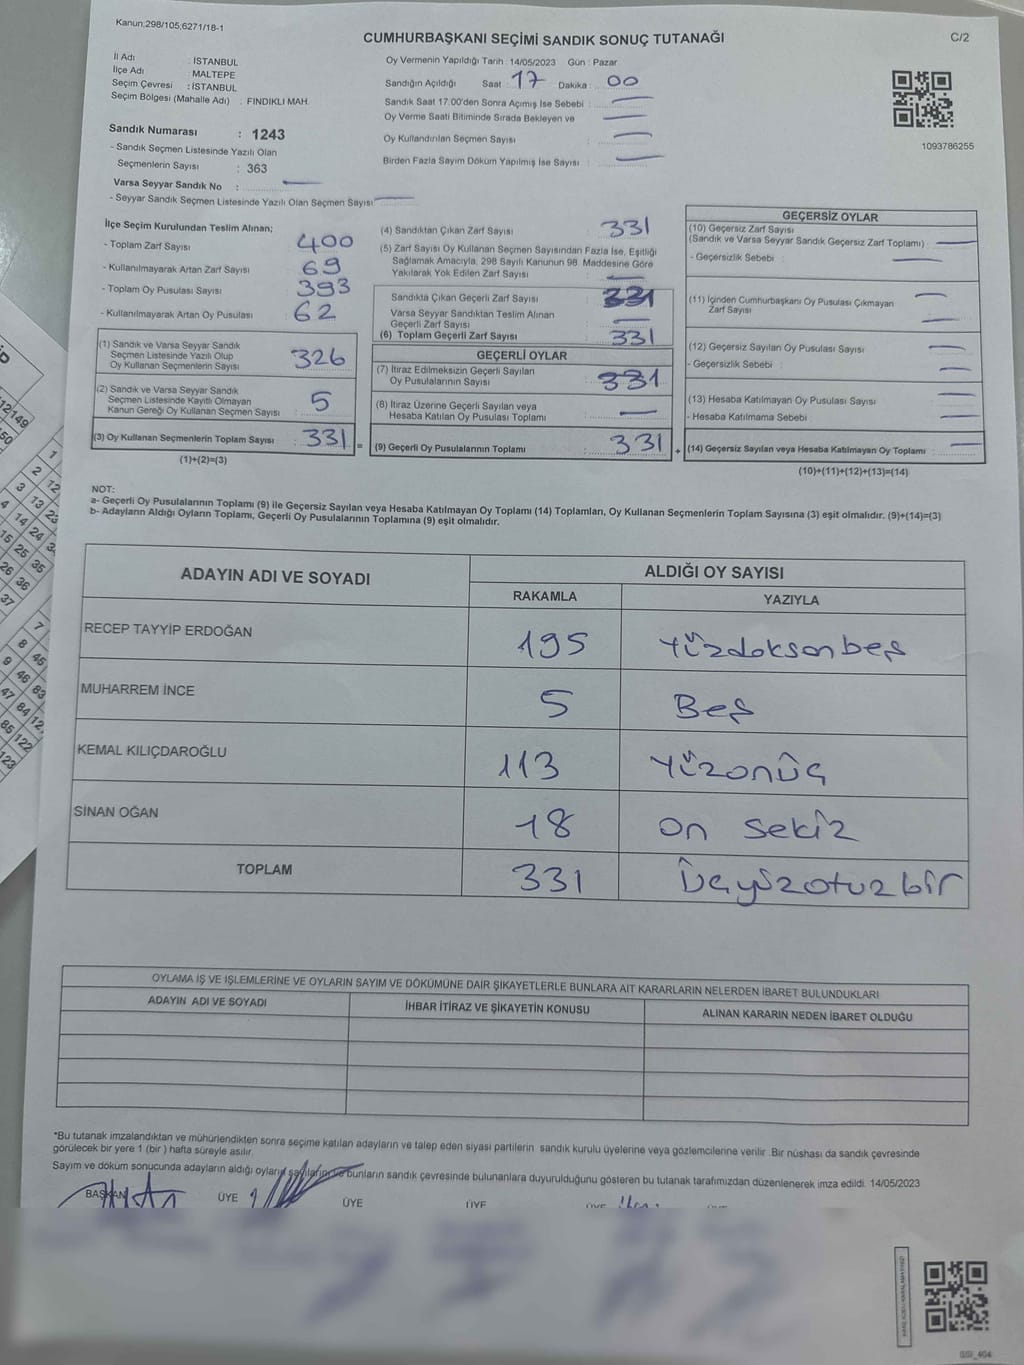 Kanun,298/105;6271/18-1
C/2
CUMHURBAŞKANI SEÇİMİ SANDIK SONUÇ TUTANAĞI
İl Adı : İSTANBUL
İlçe Adı : MALTEPE
Seçim Çevresi : İSTANBUL
Seçim Bölgesi (Mahalle Adı) : FINDIKLI MAH.
Sandık Numarası : 1243
- Sandık Seçmen Listesinde Yazılı Olan
Seçmenlerin Sayısı : 363
Varsa Seyyar Sandık No : —
- Seyyar Sandık Seçmen Listesinde Yazılı Olan Seçmen Sayısı: —
Oy Vermenin Yapıldığı Tarih : 14/05/2023 Gün : Pazar
Sandığın Açıldığı Saat 17 Dakika : 00
Sandık Saat 17:00'den Sonra Açımış İse Sebebi : —
Oy Verme Saati Bitiminde Sırada Bekleyen ve —
Oy Kullandırılan Seçmen Sayısı : —
Birden Fazla Sayım Döküm Yapılmış İse Sayısı : —
1093786255
İlçe Seçim Kurulundan Teslim Alınan;
- Toplam Zarf Sayısı 400
- Kullanılmayarak Artan Zarf Sayısı 69
- Toplam Oy Pusulası Sayısı 393
- Kullanılmayarak Artan Oy Pusulası 62
(1) Sandık ve Varsa Seyyar Sandık
Seçmen Listesinde Yazılı Olup
Oy Kullanan Seçmenlerin Sayısı 326
(2) Sandık ve Varsa Seyyar Sandık
Seçmen Listesinde Kayıtlı Olmayan
Kanun Gereği Oy Kullanan Seçmen Sayısı 5
(3) Oy Kullanan Seçmenlerin Toplam Sayısı 331 =
(1)+(2)=(3)
(4) Sandıktan Çıkan Zarf Sayısı 331
(5) Zarf Sayısı Oy Kullanan Seçmen Sayısından Fazla İse, Eşitliği
Sağlamak Amacıyla, 298 Sayılı Kanunun 98. Maddesine Göre
Yakılarak Yok Edilen Zarf Sayısı —
Sandıkta Çıkan Geçerli Zarf Sayısı 331
Varsa Seyyar Sandıktan Teslim Alınan
Geçerli Zarf Sayısı —
(6) Toplam Geçerli Zarf Sayısı 331
GEÇERLİ OYLAR
(7) İtiraz Edilmeksizin Geçerli Sayılan
Oy Pusulalarının Sayısı 331
(8) İtiraz Üzerine Geçerli Sayılan veya
Hesaba Katılan Oy Pusulası Toplamı —
(9) Geçerli Oy Pusulalarının Toplamı : 331 +
GEÇERSİZ OYLAR
(10) Geçersiz Zarf Sayısı
(Sandık ve Varsa Seyyar Sandık Geçersiz Zarf Toplamı) —
- Geçersizlik Sebebi : —
(11) İçinden Cumhurbaşkanı Oy Pusulası Çıkmayan —
Zarf Sayısı —
(12) Geçersiz Sayılan Oy Pusulası Sayısı —
- Geçersizlik Sebebi : —
(13) Hesaba Katılmayan Oy Pusulası Sayısı —
- Hesaba Katılmama Sebebi : —
(14) Geçersiz Sayılan veya Hesaba Katılmayan Oy Toplamı : —
(10)+(11)+(12)+(13)=(14)
NOT:
a- Geçerli Oy Pusulalarının Toplamı (9) ile Geçersiz Sayılan veya Hesaba Katılmayan Oy Toplamı (14) Toplamları, Oy Kullanan Seçmenlerin Toplam Sayısına (3) eşit olmalıdır. (9)+(14)=(3)
b- Adayların Aldığı Oyların Toplamı, Geçerli Oy Pusulalarının Toplamına (9) eşit olmalıdır.
ADAYIN ADI VE SOYADI ALDIĞI OY SAYISI
RAKAMLA YAZIYLA
RECEP TAYYİP ERDOĞAN 195 Yüzdoksanbeş
MUHARREM İNCE 5 Beş
KEMAL KILIÇDAROĞLU 113 Yüzonüç
SİNAN OĞAN 18 on sekiz
TOPLAM 331 Üçyüzotuzbir
OYLAMA İŞ VE İŞLEMLERİNE VE OYLARIN SAYIM VE DÖKÜMÜNE DAİR ŞİKAYETLERLE BUNLARA AİT KARARLARIN NELERDEN İBARET BULUNDUKLARI
ADAYIN ADI VE SOYADI İHBAR İTİRAZ VE ŞİKAYETİN KONUSU ALINAN KARARIN NEDEN İBARET OLDUĞU
*Bu tutanak imzalandıktan ve mühürlendikten sonra seçime katılan adayların ve talep eden siyasi partilerin sandık kurulu üyelerine veya gözlemcilerine verilir. Bir nüshası da sandık çevresinde
görülecek bir yere 1 (bir ) hafta süreyle asılır.
Sayım ve döküm sonucunda adayların aldığı oyların sayılarını ve bunların sandık çevresinde bulunanlara duyurulduğunu gösteren bu tutanak tarafımızdan düzenlenerek imza edildi. 14/05/2023
BAŞKAN ÜYE ÜYE ÜYE